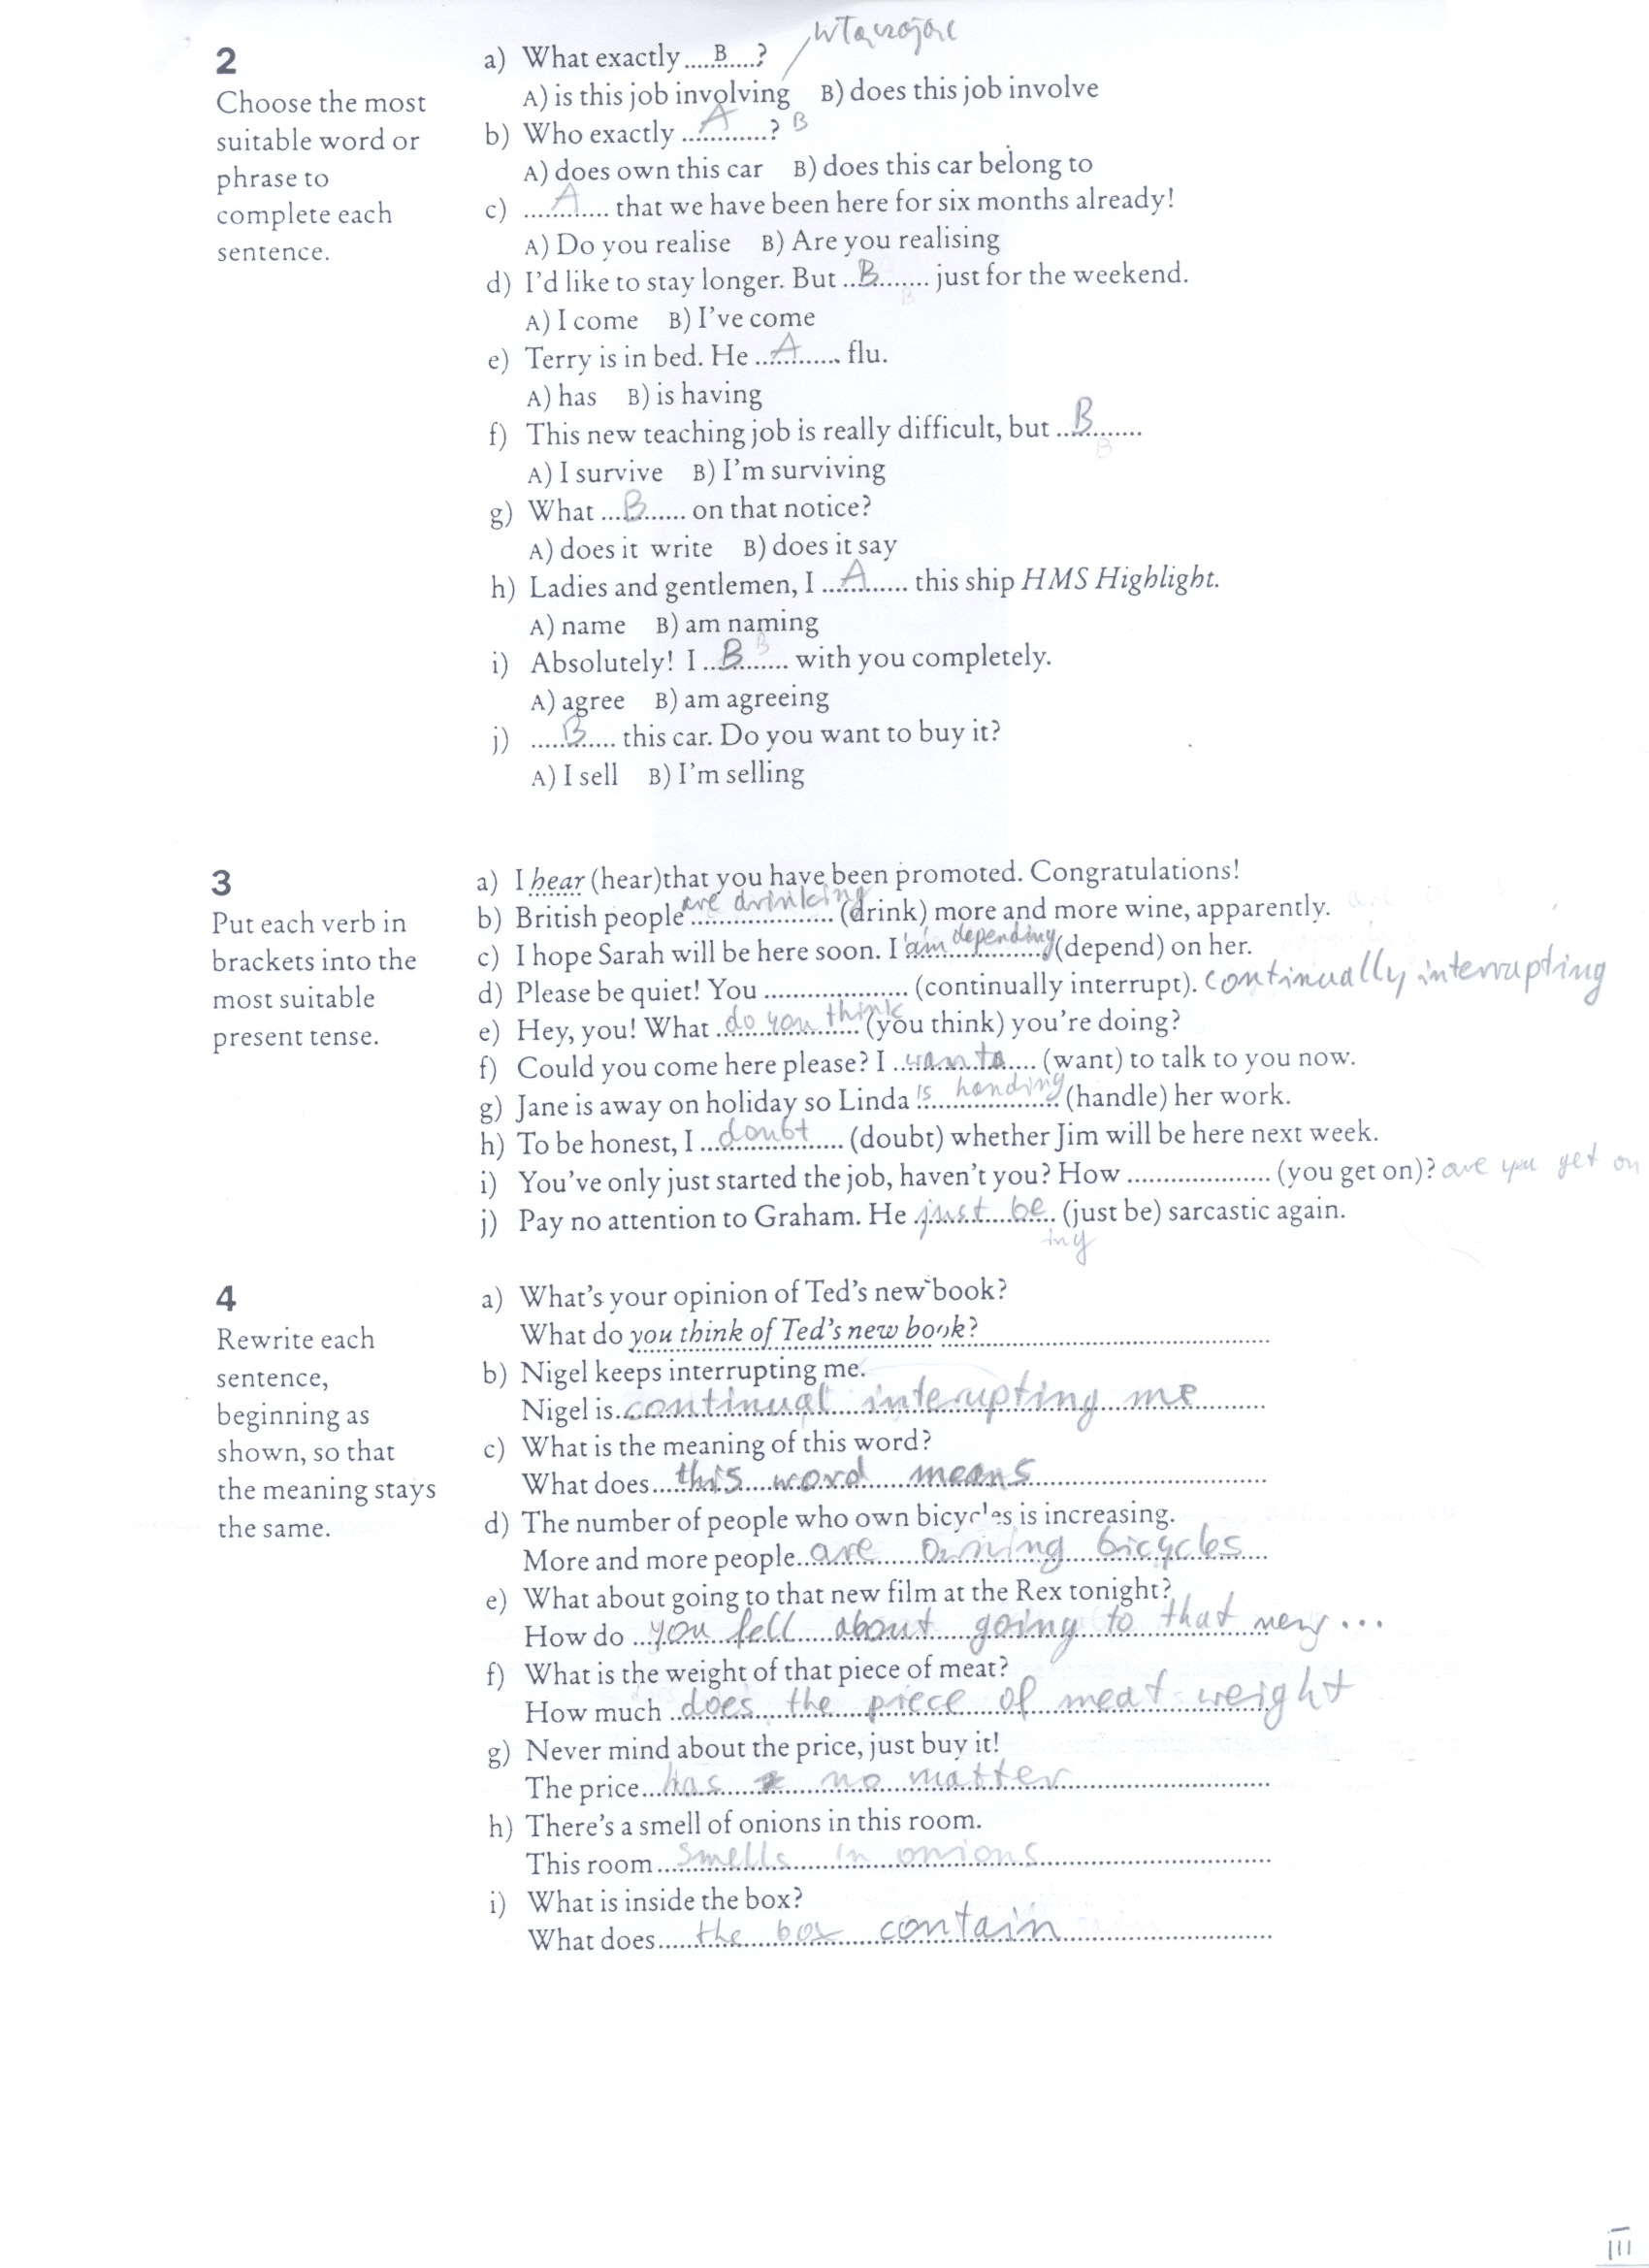 włączając
2
Choose the most
suitable word or
phrase to
complete each
sentence.
a) What exactly ....B....?
A) is this job involving B) does this job involve
b) Who exactly ....A....? B
A) does own this car B) does this car belong to
c) ....A.... that we have been here for six months already!
A) Do you realise B) Are you realising
d) I'd like to stay longer. But ..B...... just for the weekend.
A) I come B) I've come
e) Terry is in bed. He ..A...... flu.
A) has B) is having
f) This new teaching job is really difficult, but ..B......
B
A) I survive B) I'm surviving
g) What ...B...... on that notice?
A) does it write B) does it say
h) Ladies and gentlemen, I ...A...... this ship HMS Highlight.
A) name B) am naming
i) Absolutely! I ..B...... with you completely.
A) agree B) am agreeing
j) ....B.... this car. Do you want to buy it?
A) I sell B) I'm selling
3
Put each verb in
brackets into the
most suitable
present tense.
a) I hear (hear)that you have been promoted. Congratulations!
b) British people are drinking (drink) more and more wine, apparently.
c) I hope Sarah will be here soon. I 'am depending (depend) on her.
d) Please be quiet! You .................... (continually interrupt). continually interrupting
e) Hey, you! What do you think (you think) you're doing?
f) Could you come here please? I want (want) to talk to you now.
g) Jane is away on holiday so Linda is handing (handle) her work.
h) To be honest, I doubt (doubt) whether Jim will be here next week.
i) You've only just started the job, haven't you? How .................... (you get on)? are you get on
j) Pay no attention to Graham. He just be (just be) sarcastic again.
ing
4
Rewrite each
sentence,
beginning as
shown, so that
the meaning stays
the same.
a) What's your opinion of Ted's new book?
What do you think of Ted's new book?
b) Nigel keeps interrupting me.
Nigel is continual interupting me
c) What is the meaning of this word?
What does this word means
d) The number of people who own bicycles is increasing.
More and more people are owning bicycles
e) What about going to that new film at the Rex tonight?
How do you fell about going to that new ...
f) What is the weight of that piece of meat?
How much does the piece of meat weight
g) Never mind about the price, just buy it!
The price has no matter
h) There's a smell of onions in this room.
This room smells in onions
i) What is inside the box?
What does the box contain
III